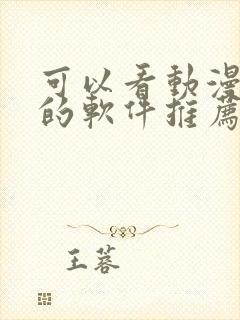 可以看動漫
的軟件推薦
王蓉